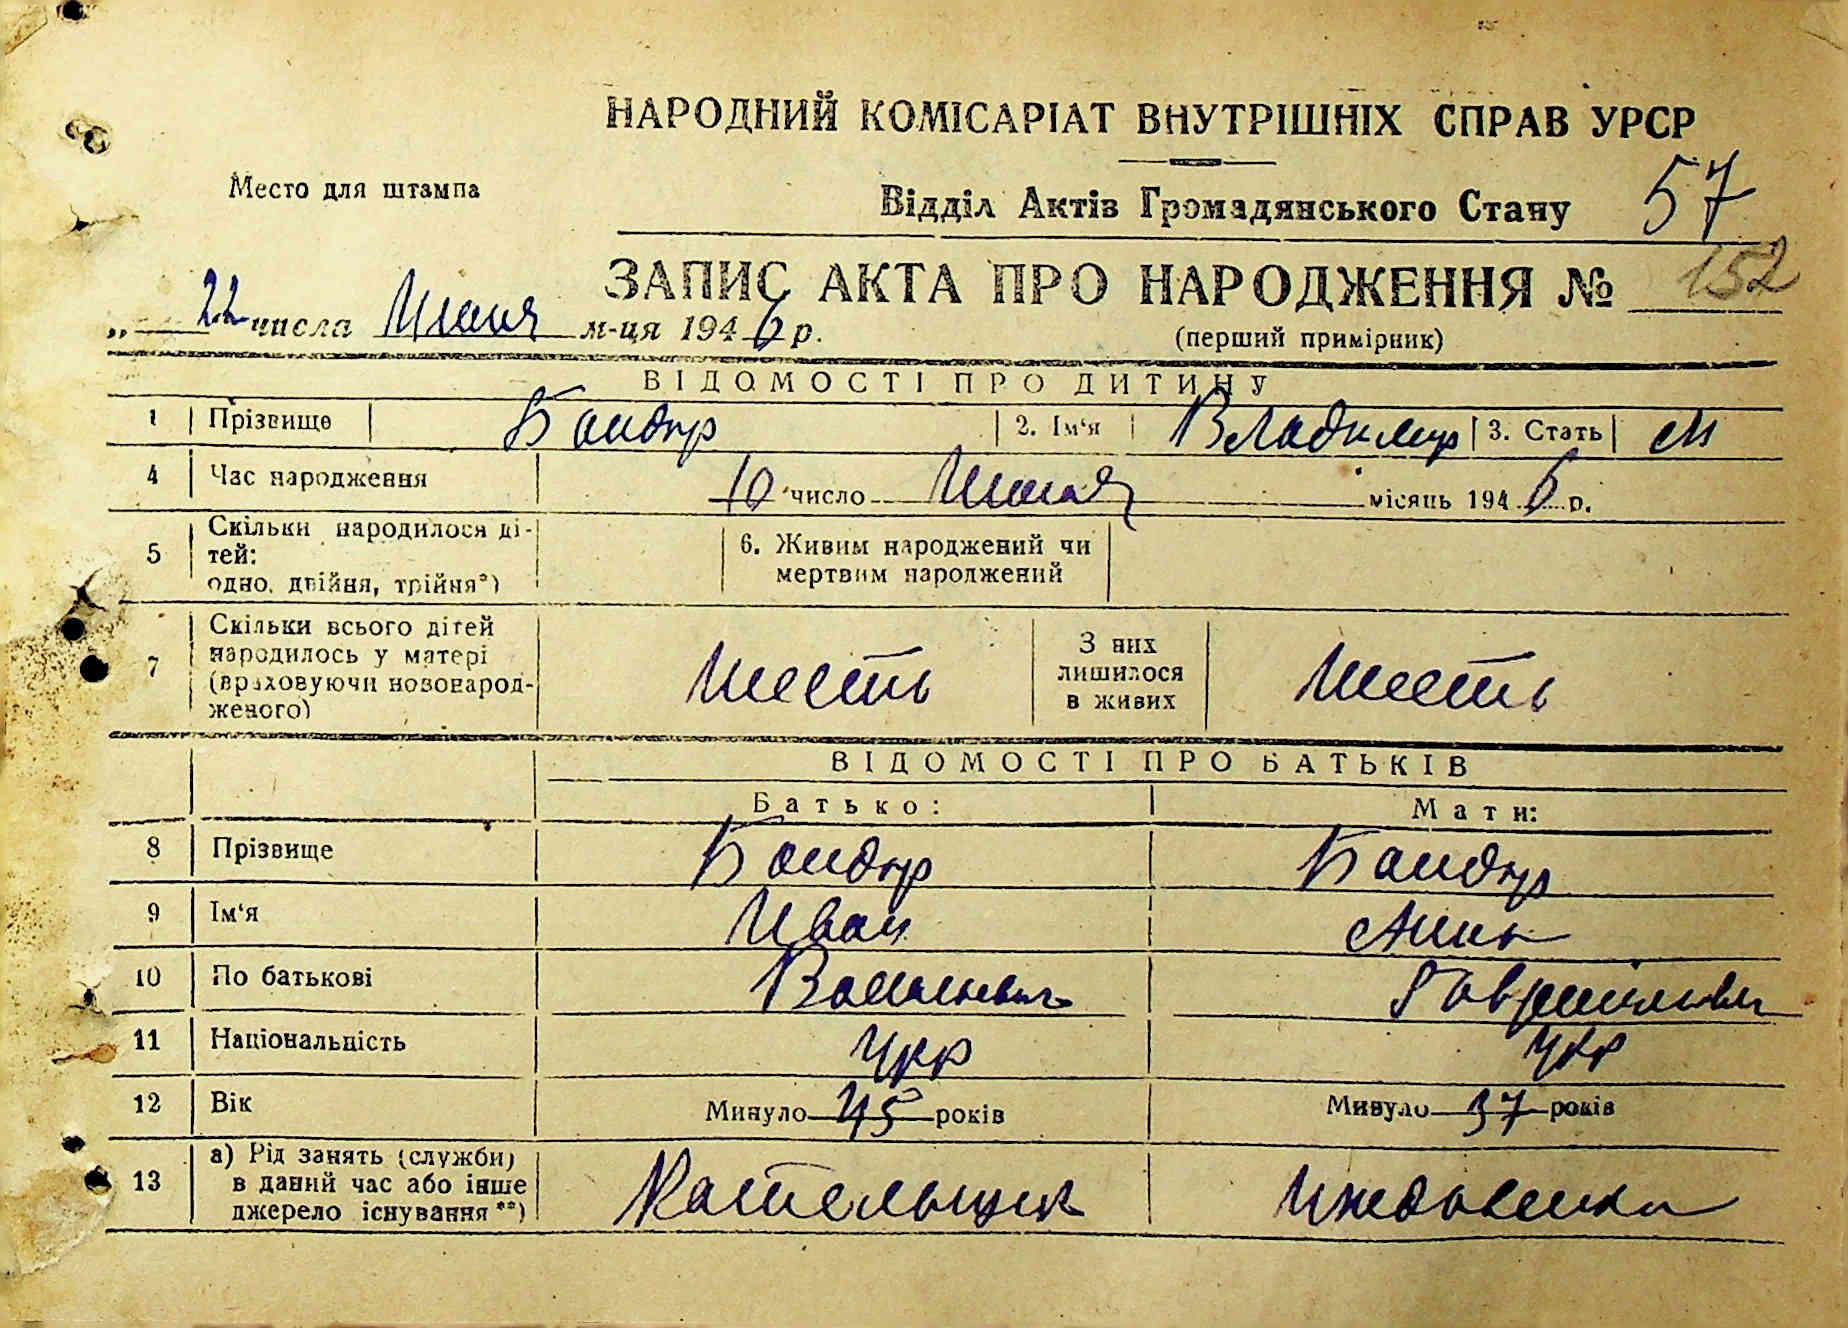 НАРОДНИЙ КОМІСАРІАТ ВНУТРІШНІХ СПРАВ УРСР
Место для штампа
Відділ Актів Громадянського Стану 57
ЗАПИС АКТА ПРО НАРОДЖЕННЯ № 152
„ 22 числа Июня м-ця 1946 р.
(перший примірник)
ВІДОМОСТІ ПРО ДИТИНУ
1 Прізвище Бондар 2. Ім'я Владимир 3. Стать м
4 Час народження 10 число Июня місяць 1946 р.
5 Скільки народилося ді-
тей:
одно, двійня, трійня*)
6. Живим народжений чи
мертвим народжений
7 Скільки всього дітей
народилось у матері
(враховуючи новонарод-
женого)
Шесть
З них
лишилося
в живих
Шесть
ВІДОМОСТІ ПРО БАТЬКІВ
Батько: Мати:
8 Прізвище Бондар Бондар
9 Ім'я Иван Анна
10 По батькові Васильевич
11 Національність Укр Укр
12 Вік Минуло 45 років Минуло 37 років
13 а) Рід занять (служби)
в даний час або інше
джерело існування **)
Котельщик Иждовенка